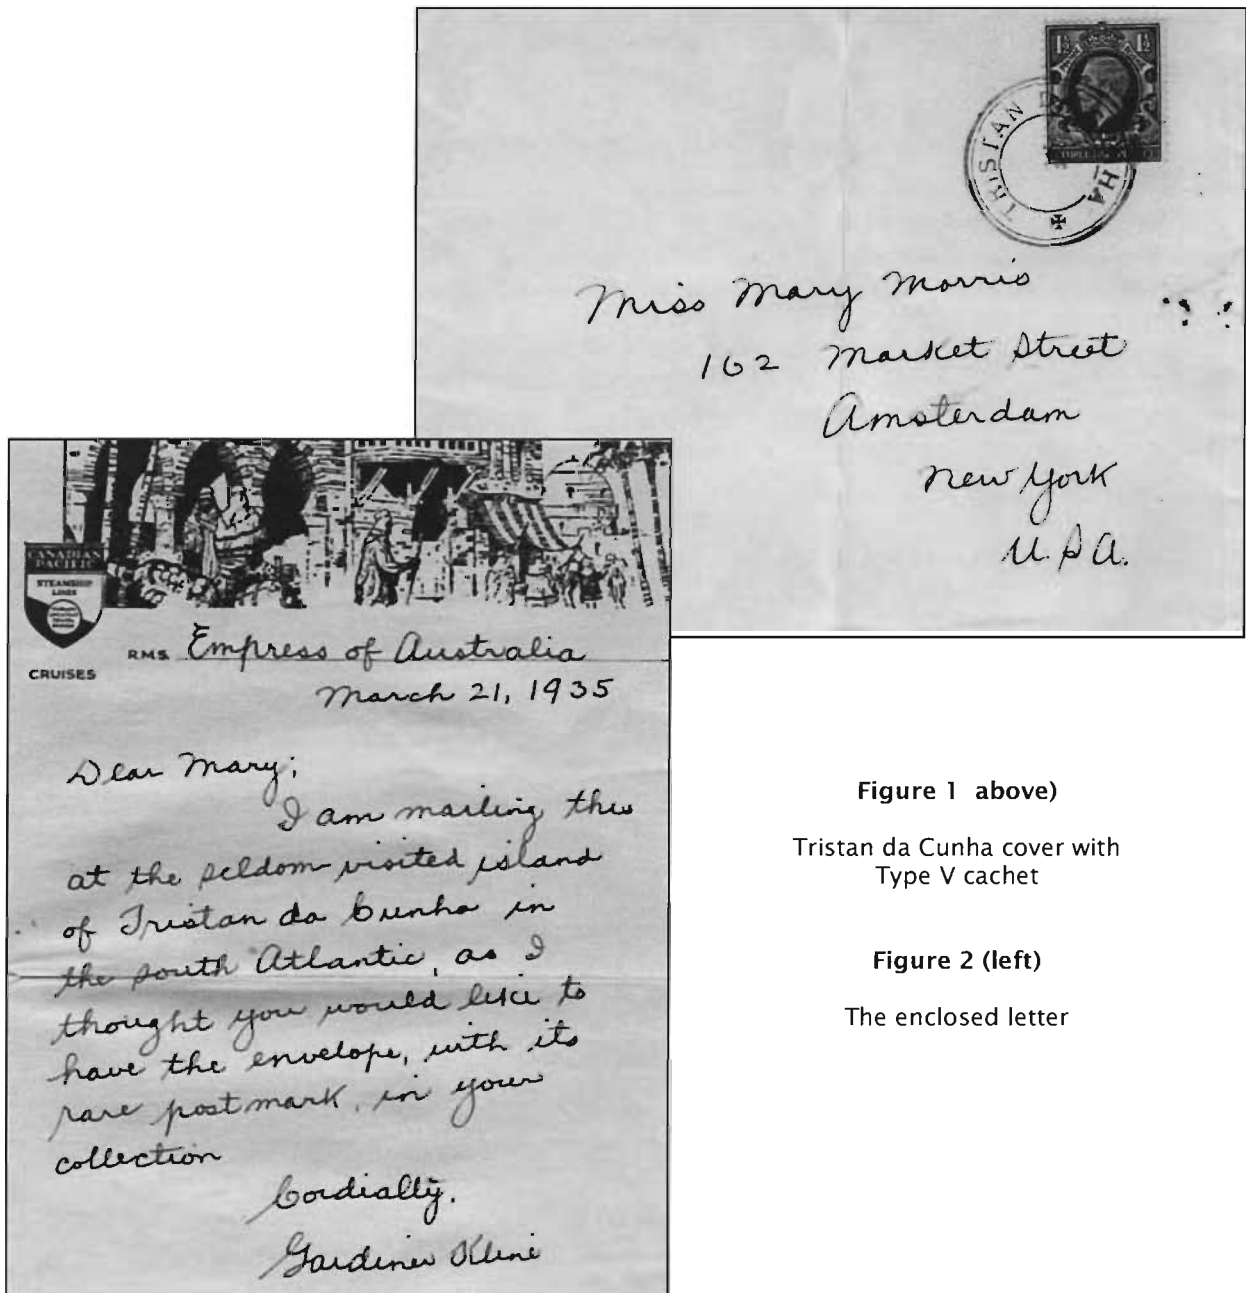 1½ 1½
TRISTAN D HA
Miss Mary Morris
162 Market Street
Amsterdam
New York
U.S.A.
CANADIAN
PACIFIC
STEAMSHIP
LINES
CRUISES
RMS Empress of Australia
March 21, 1935
Dear Mary;
I am mailing this
at the seldom visited island
of Tristan da Cunha in
the south Atlantic, as I
thought you would like to
have the envelope, with its
rare postmark, in your
collection
Cordially,
Gardiner Kline
Figure 1 above)
Tristan da Cunha cover with
Type V cachet
Figure 2 (left)
The enclosed letter